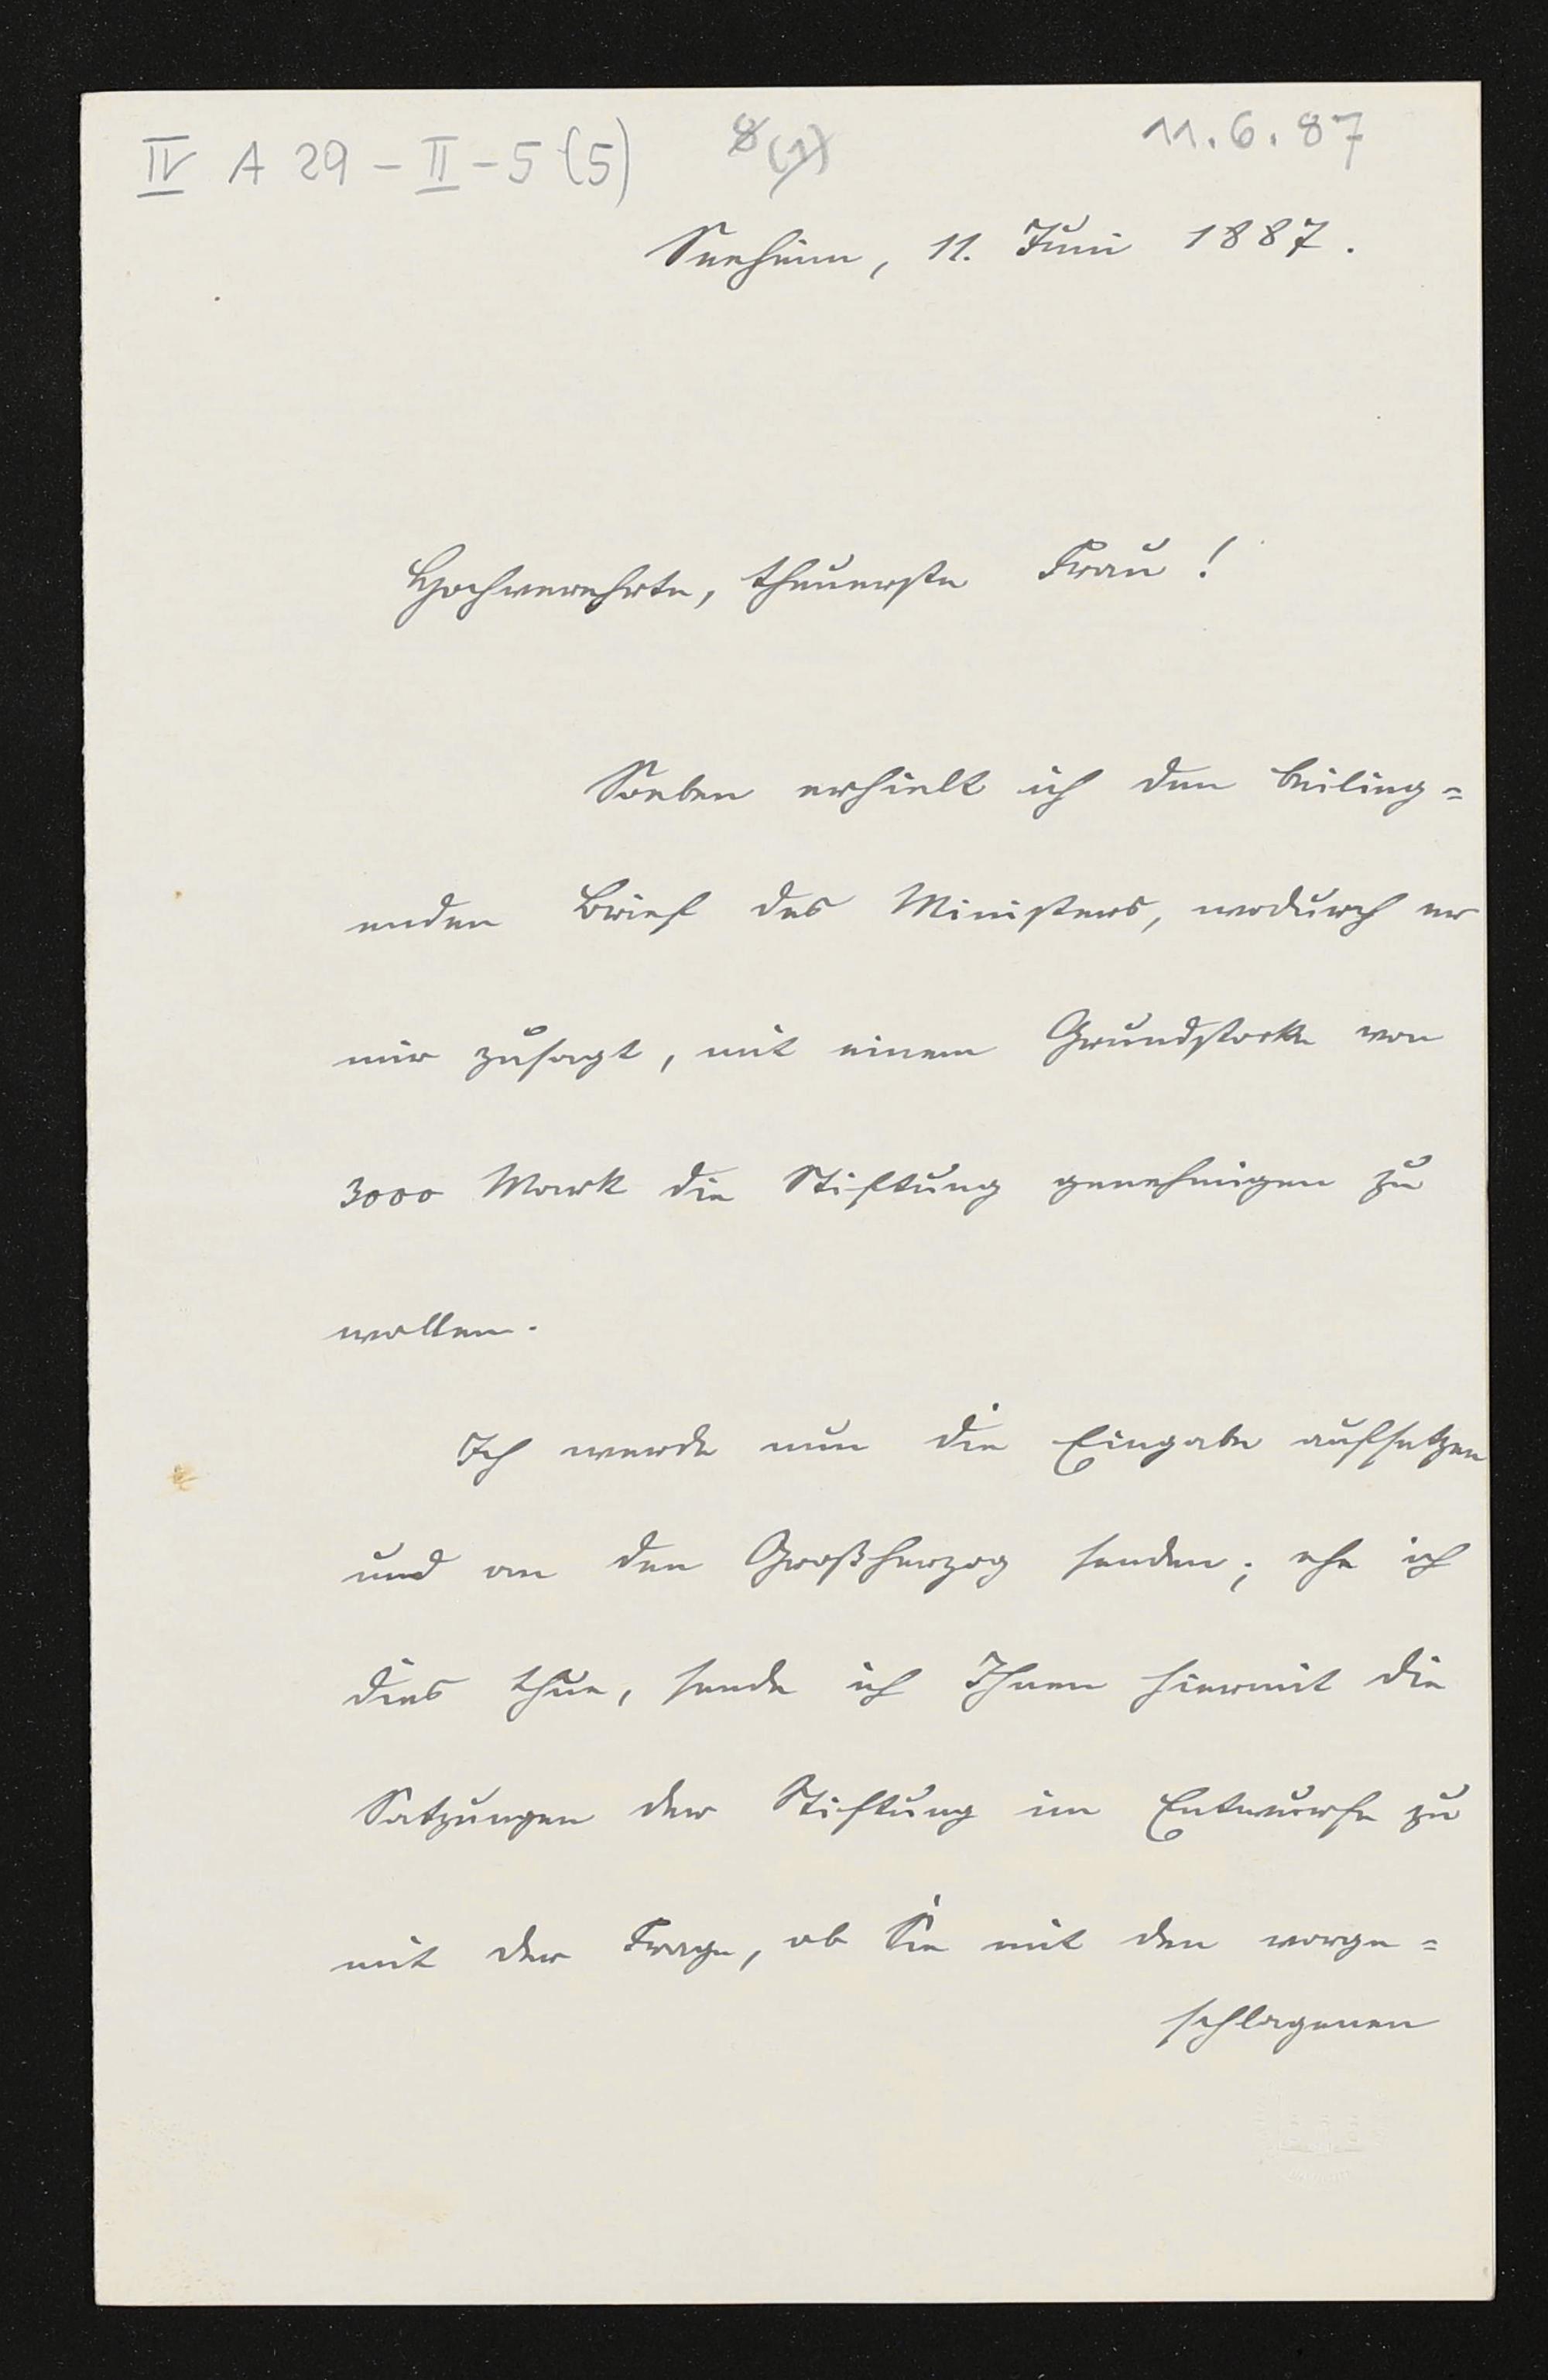 IV A 29 - II - 5 (5)
8 (1)
11.6.87
Seeheim, 11. Juni 1887.
Hochverehrte, theuerste Frau!
Soeben erhielt ich den beilieg=
enden Brief des Ministers, wodurch er
mir zusagt, mit einem Grundstocke von
3000 Mark die Stiftung genehmigen zu
wollen.
Ich werde nun die Eingabe aufsetzen
und an den Großherzog senden; ehe ich
dies thue, sende ich Ihnen hiermit die
Satzungen der Stiftung im Entwurfe zu
mit der Frage, ob Sie mit den vorge=
schlagenen